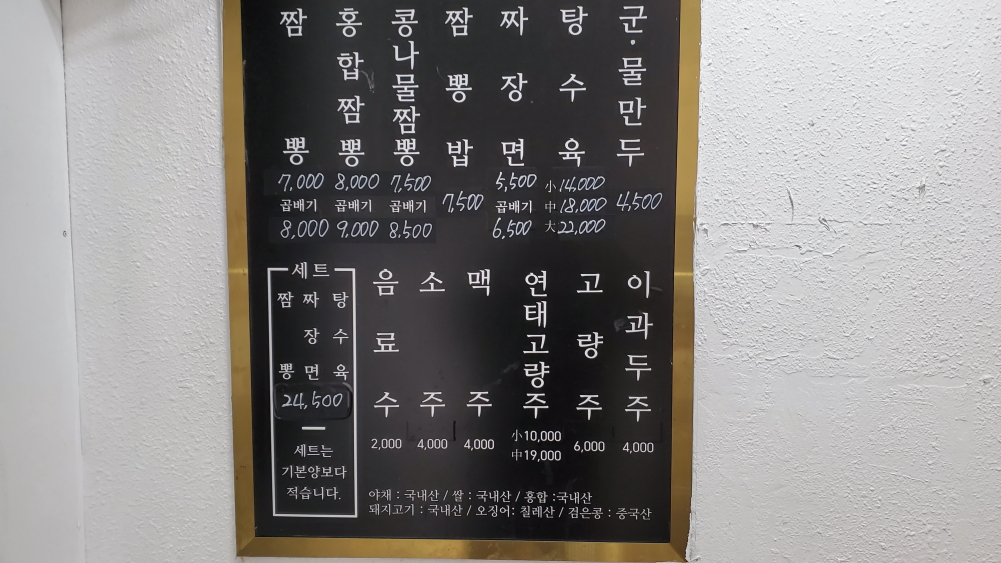 짬뽕
7,000
곱배기
8,000
홍합짬뽕
8,000
곱배기
9,000
콩나물짬뽕
7,500
곱배기
8.500
짬뽕밥
7,500
짜장면
5,500
곱배기
6,500
탕수육
小 14,000
中 18,000
大 22,000
군·물만두
4,500
세트
짬뽕
짜장면
탕수육
24,500
세트는
기본양보다
적습니다.
음료수
2,000
소주
4,000
맥주
4,000
연태고량주
小10,000
中19,000
고량주
6,000
이과두주
4,000
야채 : 국내산 / 쌀 : 국내산 / 홍합 :국내산
돼지고기 : 국내산 / 오징어: 칠레산 / 검은콩 : 중국산